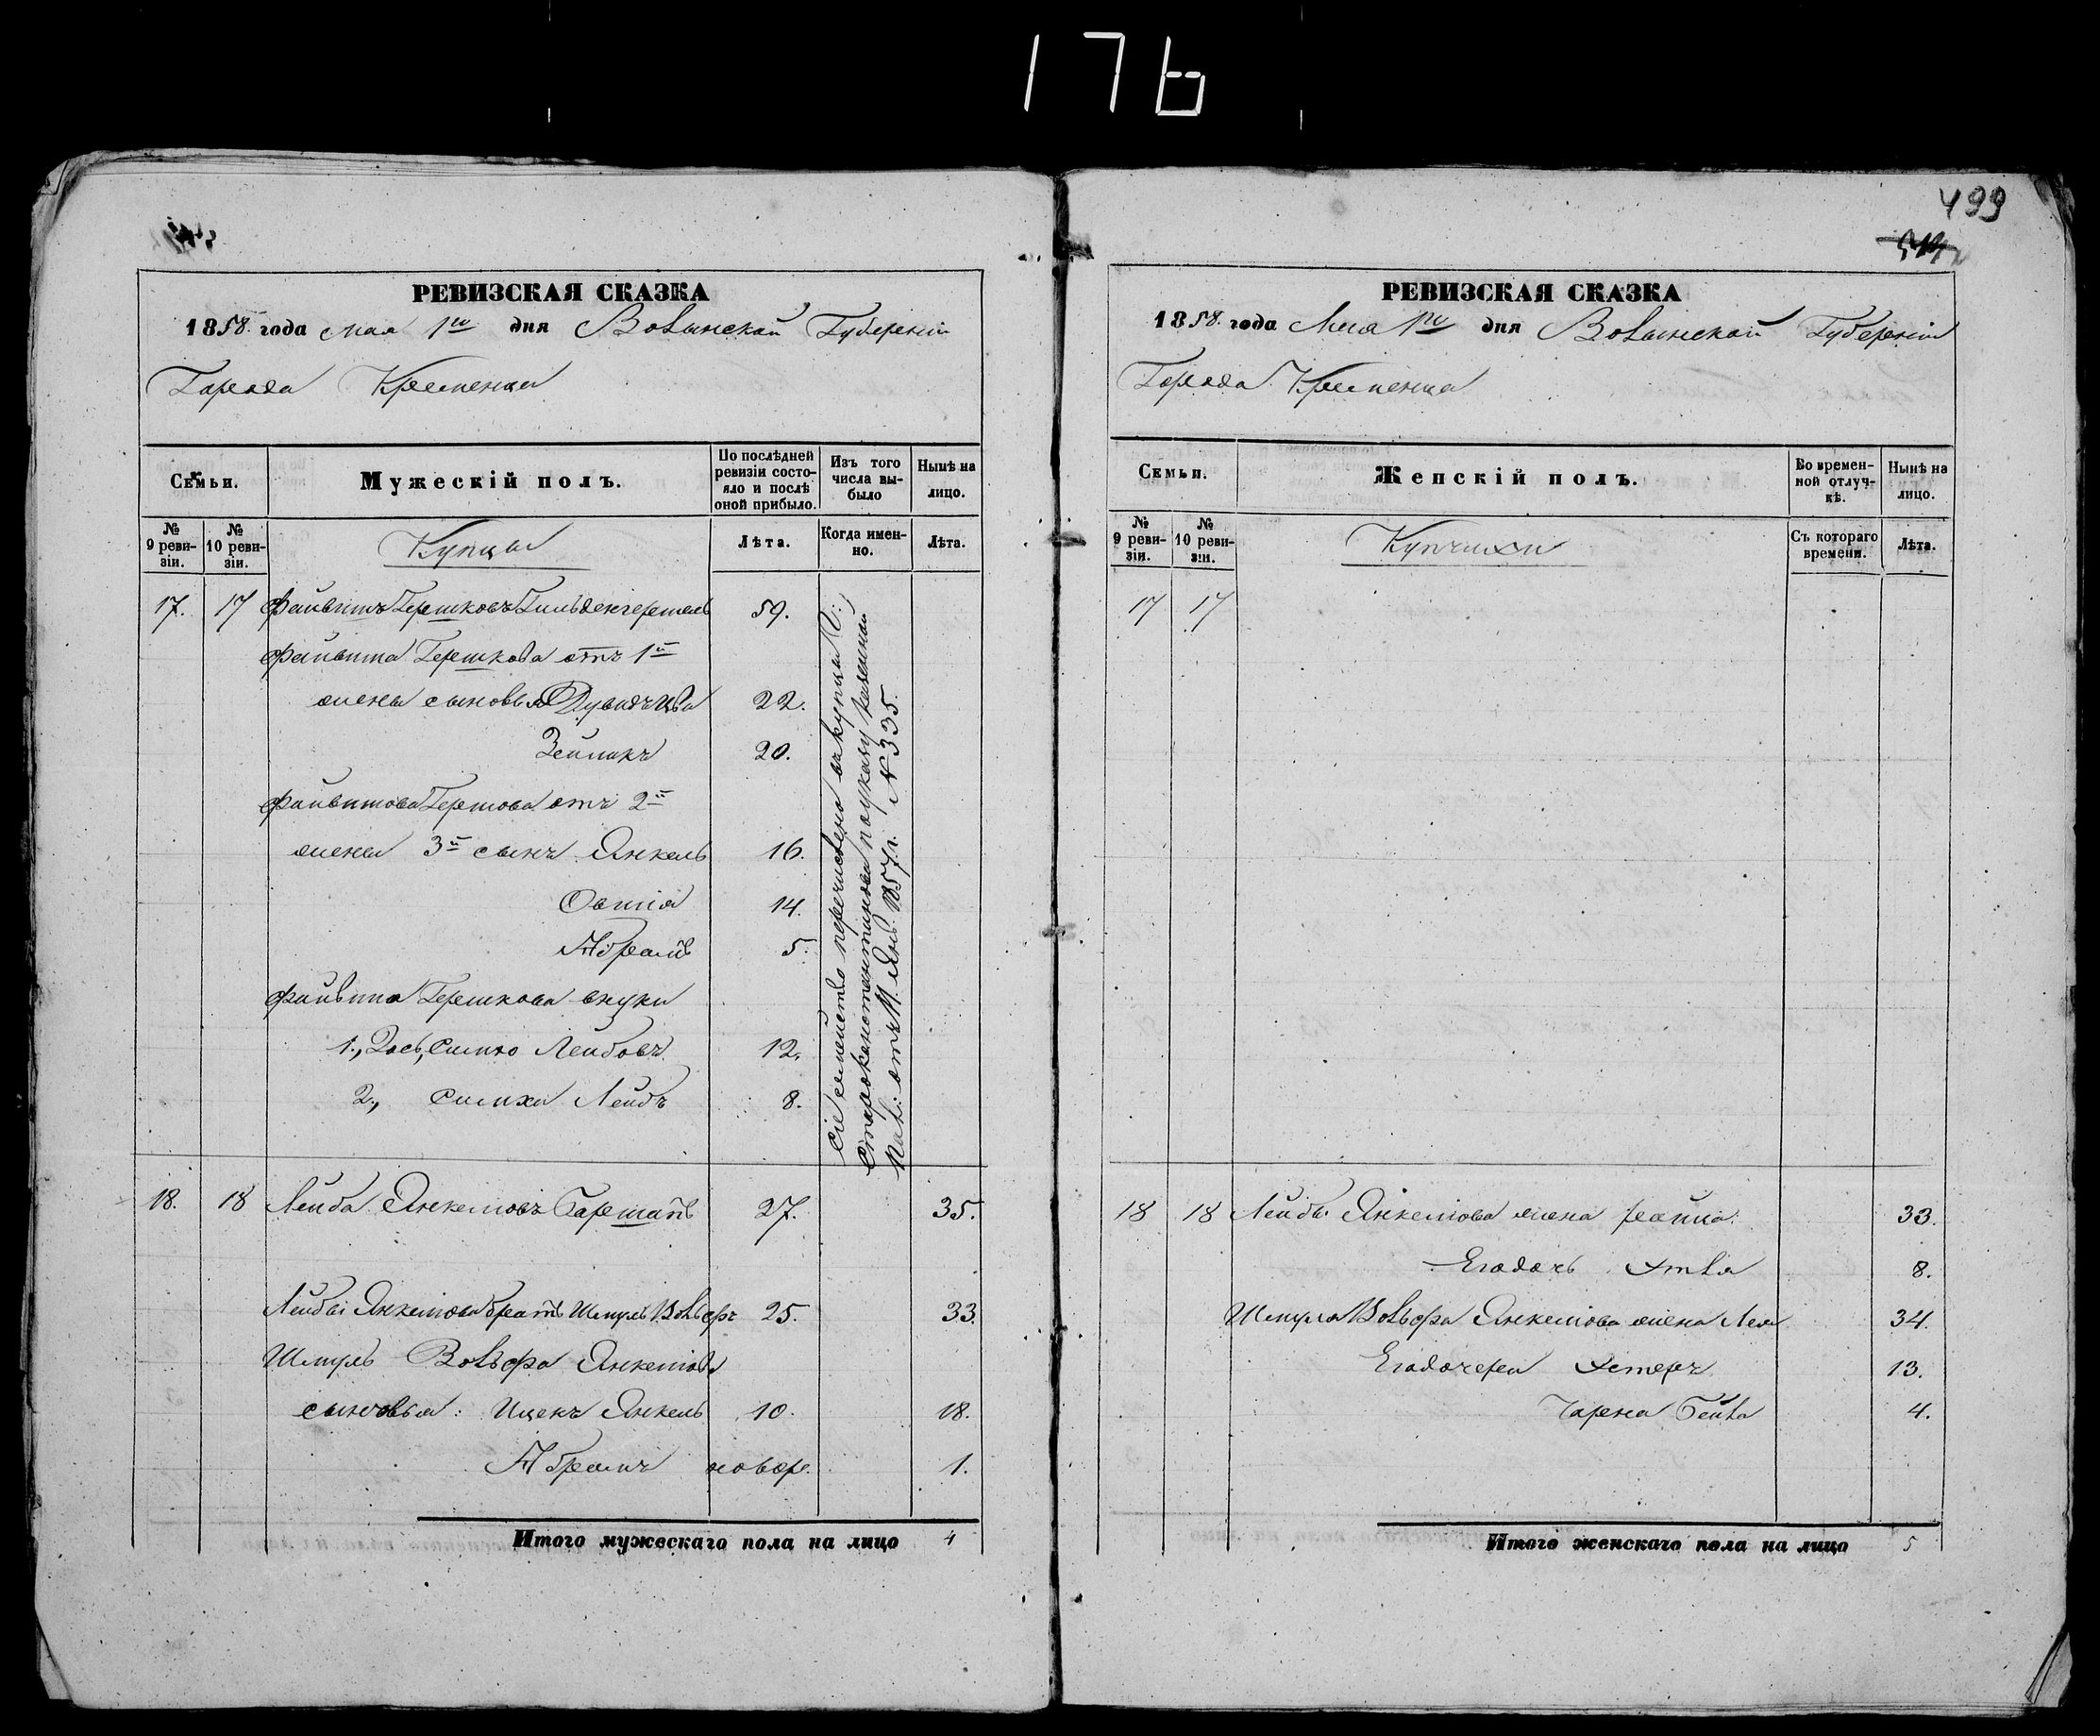 176
РЕВИЗСКАЯ СКАЗКА
1858 года мая 1го дня Волынской Губерніи
Города Кременца
Семьи.
Мужескій полъ.
По послѣдней ревизіи состояло и послѣ оной прибыло.
Изъ того числа выбыло
Нынѣ на лицо.
№ 9 ревизіи.
№ 10 ревизіи.
Купцы
Лѣта.
Когда именно.
Лѣта.
17. 17 Файвишъ Гершковъ 59.
Файвиша Гершкова отъ 1й
жены сыновья 22.
Зейликъ 20.
Файвишова Гершова отъ 2й
жены 3й сынъ Янкель 16.
Овшія 14.
Абрамъ 5.
Файвиша Гершкова внуки
1., Лейбовъ 12.
2., Симха Лейбъ 8.
Сіе семейство перечислено въ купцы
Староконстантинова по указу казенной
Пал: отъ 11 Янв. 1857 г. N 335.
18. 18 Лейба Янкелiовъ 27. 35.
Лейбы Янкеліова братъ Шмуль Вольфъ 25. 33.
Шмуль Вольфа Янкеліова
сыновья: Ицекъ Янкель 10. 18.
Абрамъ новор. 1.
Итого мужескаго пола на лицо 4
499
РЕВИЗСКАЯ СКАЗКА
1858. года Мая 1го дня Волынской Губерніи
Города Кременца
Семьи.
Женскій полъ.
Во временной отлучкѣ.
Нынѣ на лицо.
№ 9 ревизіи.
№ 10 ревизіи.
Купчихи
Съ котораго времени.
Лѣта.
17 17
18 18 Лейбы Янкеліова жена 33.
Его дочь 8.
Шмуля Вольфа Янкеліова жена Лея 34.
Его дочери Эстеръ 13.
Чарна Бейла 4.
Итого женскаго пола на лицо 5